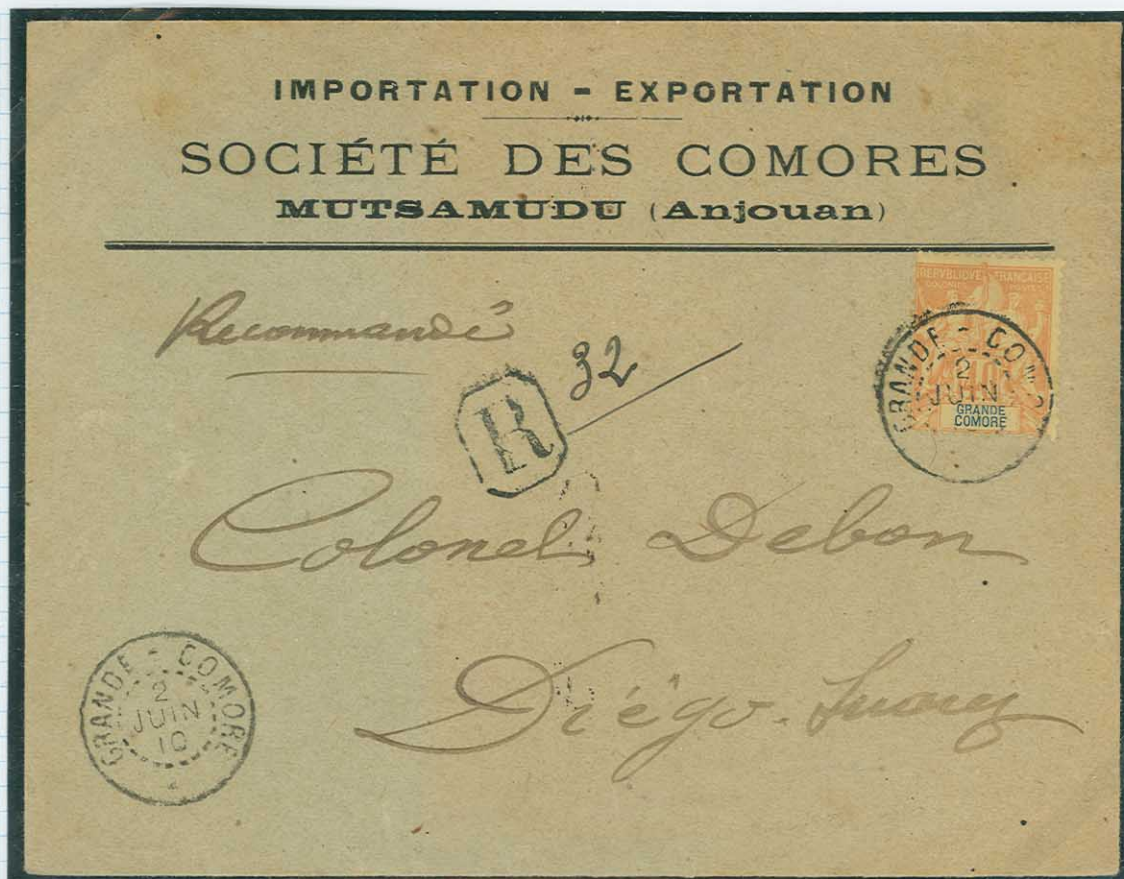 IMPORTATION - EXPORTATION
SOCIÉTÉ DES COMORES
MUTSAMUDU (Anjouan)
REPUBLIQUE FRANÇAISE
COLONIES POSTES
GRANDE
COMORE
GRANDE - COM
2
JUIN
Recommandé
R 32
Colonel Debon
Diégo-Suarez
GRANDE - COMORE
2
JUIN
10